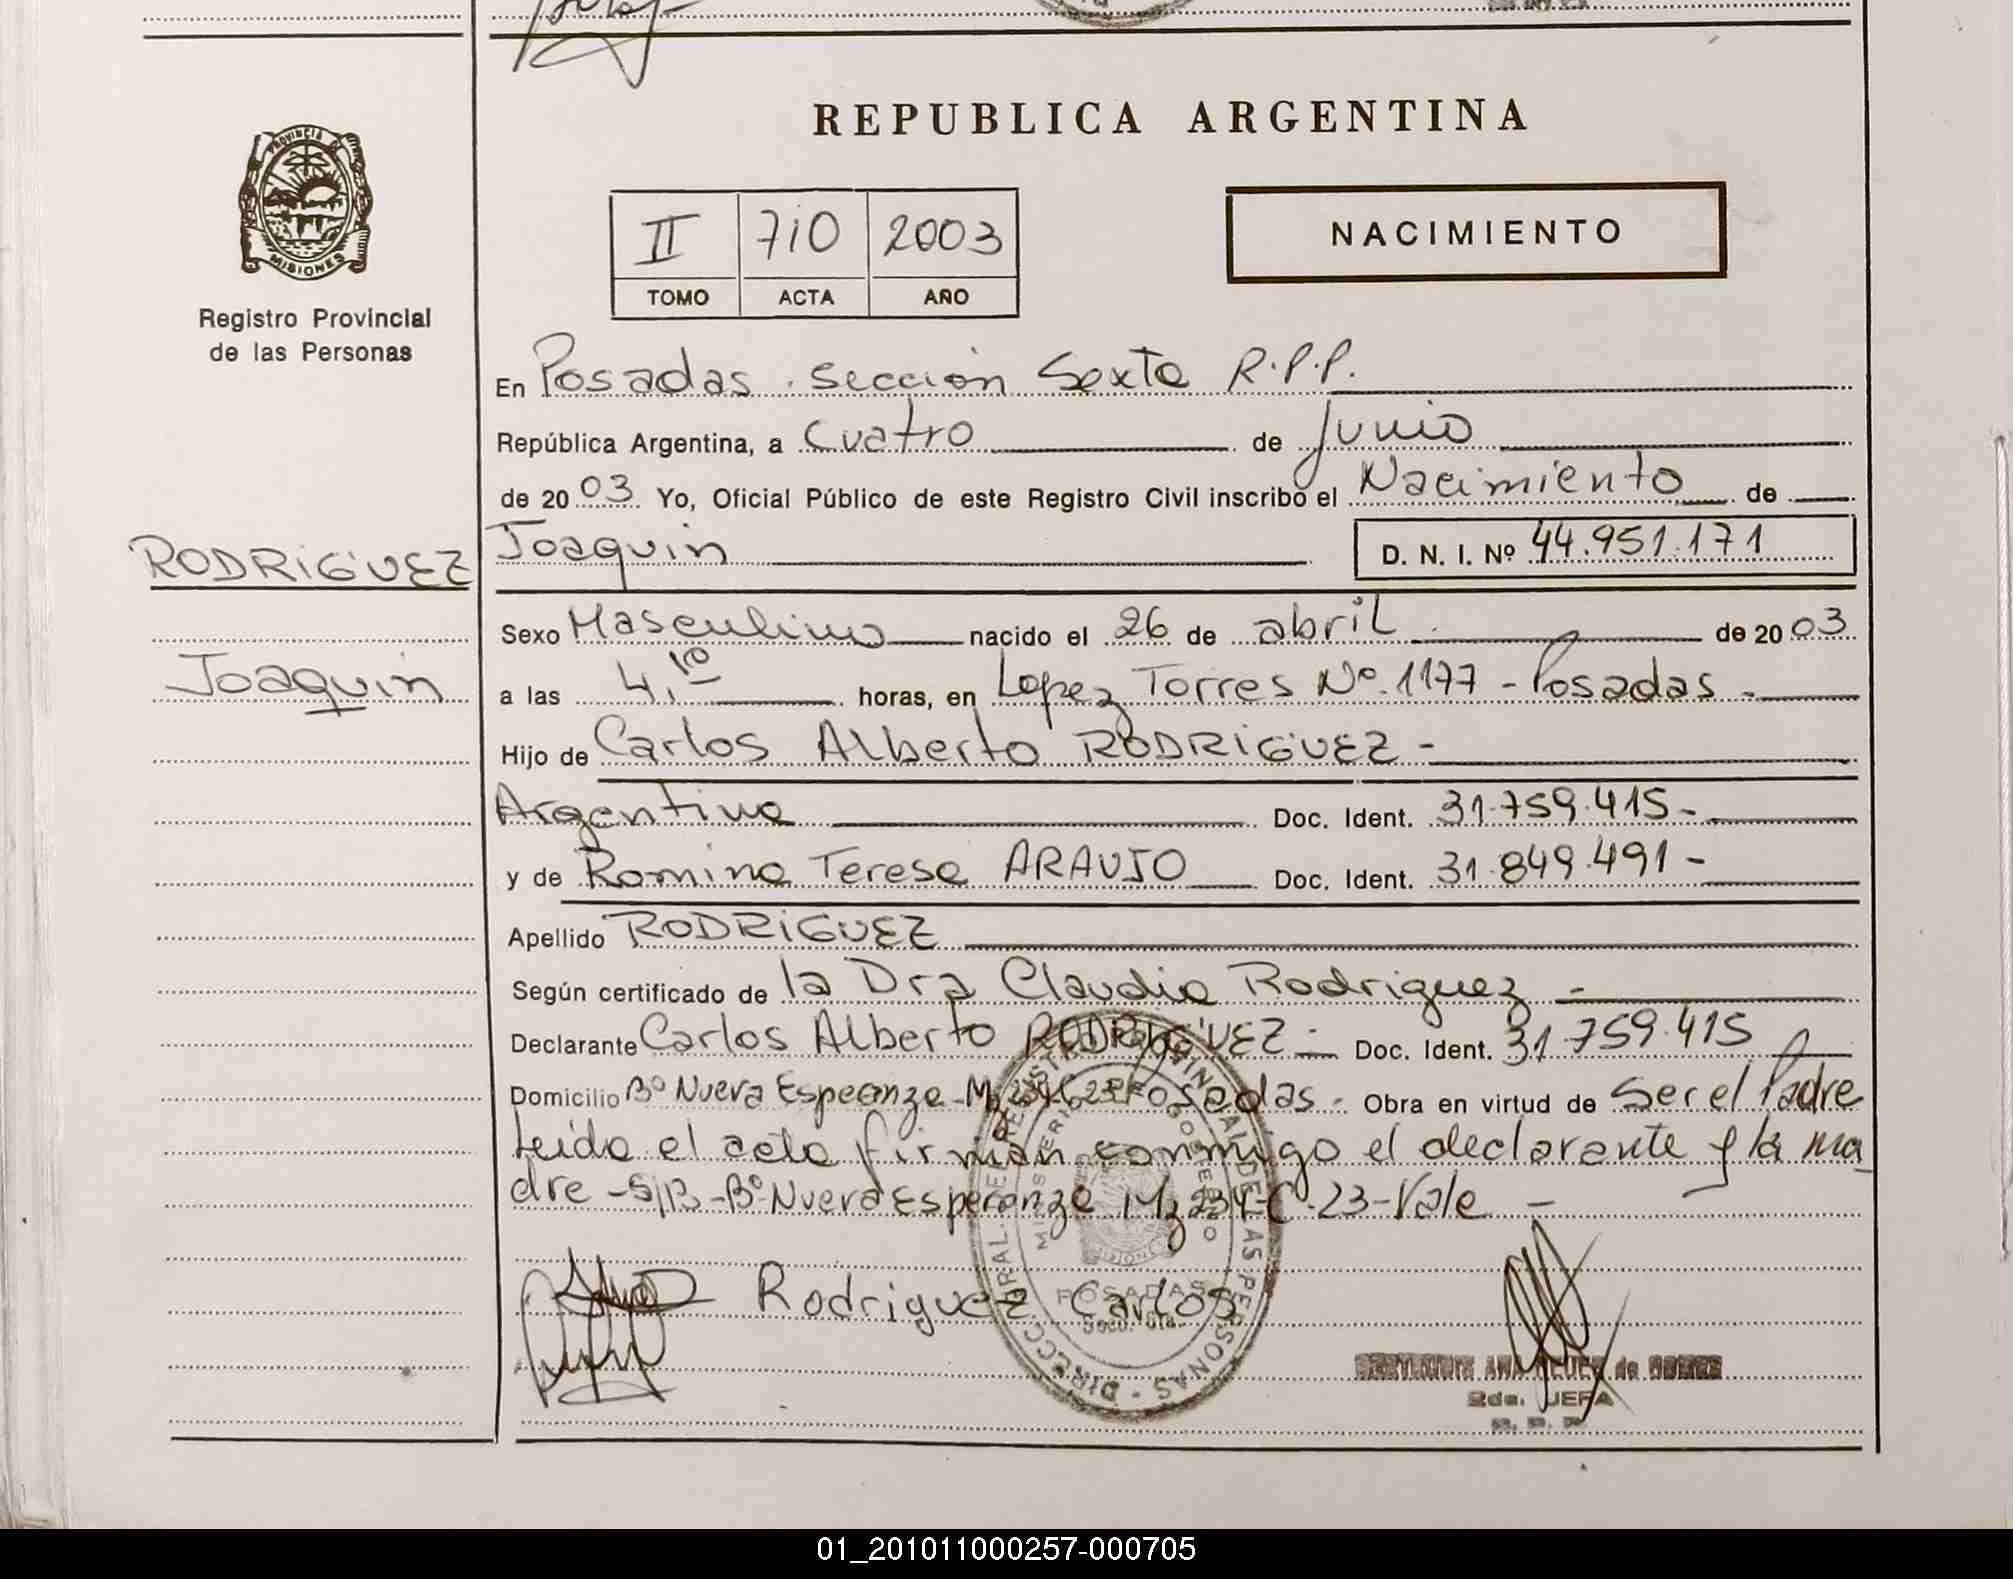 REPUBLICA ARGENTINA
PROVINCIA DE
MISIONES
Registro Provincial
de las Personas
II 710 2003
TOMO ACTA AÑO
NACIMIENTO
En Posadas. Sección Sexta R.P.P.
República Argentina, a Cuatro de Junio
de 2003 Yo, Oficial Público de este Registro Civil inscribo el Nacimiento de
RODRIGUEZ
Joaquin
Joaquin D. N. I. Nº 44.951.171
Sexo Masculino nacido el 26 de abril de 2003
a las 4,10 horas, en Lopez Torres Nº. 1177 - Posadas -
Hijo de Carlos Alberto RODRIGUEZ -
Argentina Doc. Ident. 31.759.415-
y de Romina Teresa ARAUJO Doc. Ident. 31.849.491-
Apellido RODRIGUEZ
Según certificado de la Dra Claudia Rodriguez -
Declarante Carlos Alberto RODRIGUEZ - Doc. Ident. 31.759.415
Domicilio Bº Nueva Esperanza - Mz 234 C 23 Posadas - Obra en virtud de Ser el Padre
leida el acta firman conmigo el declarante y la ma
dre - S/B - Bº Nueva Esperanza Mz 234-C-23-Vale -
Rodriguez Carlos
POSADAS
2da. JEFA
01_201011000257-000705